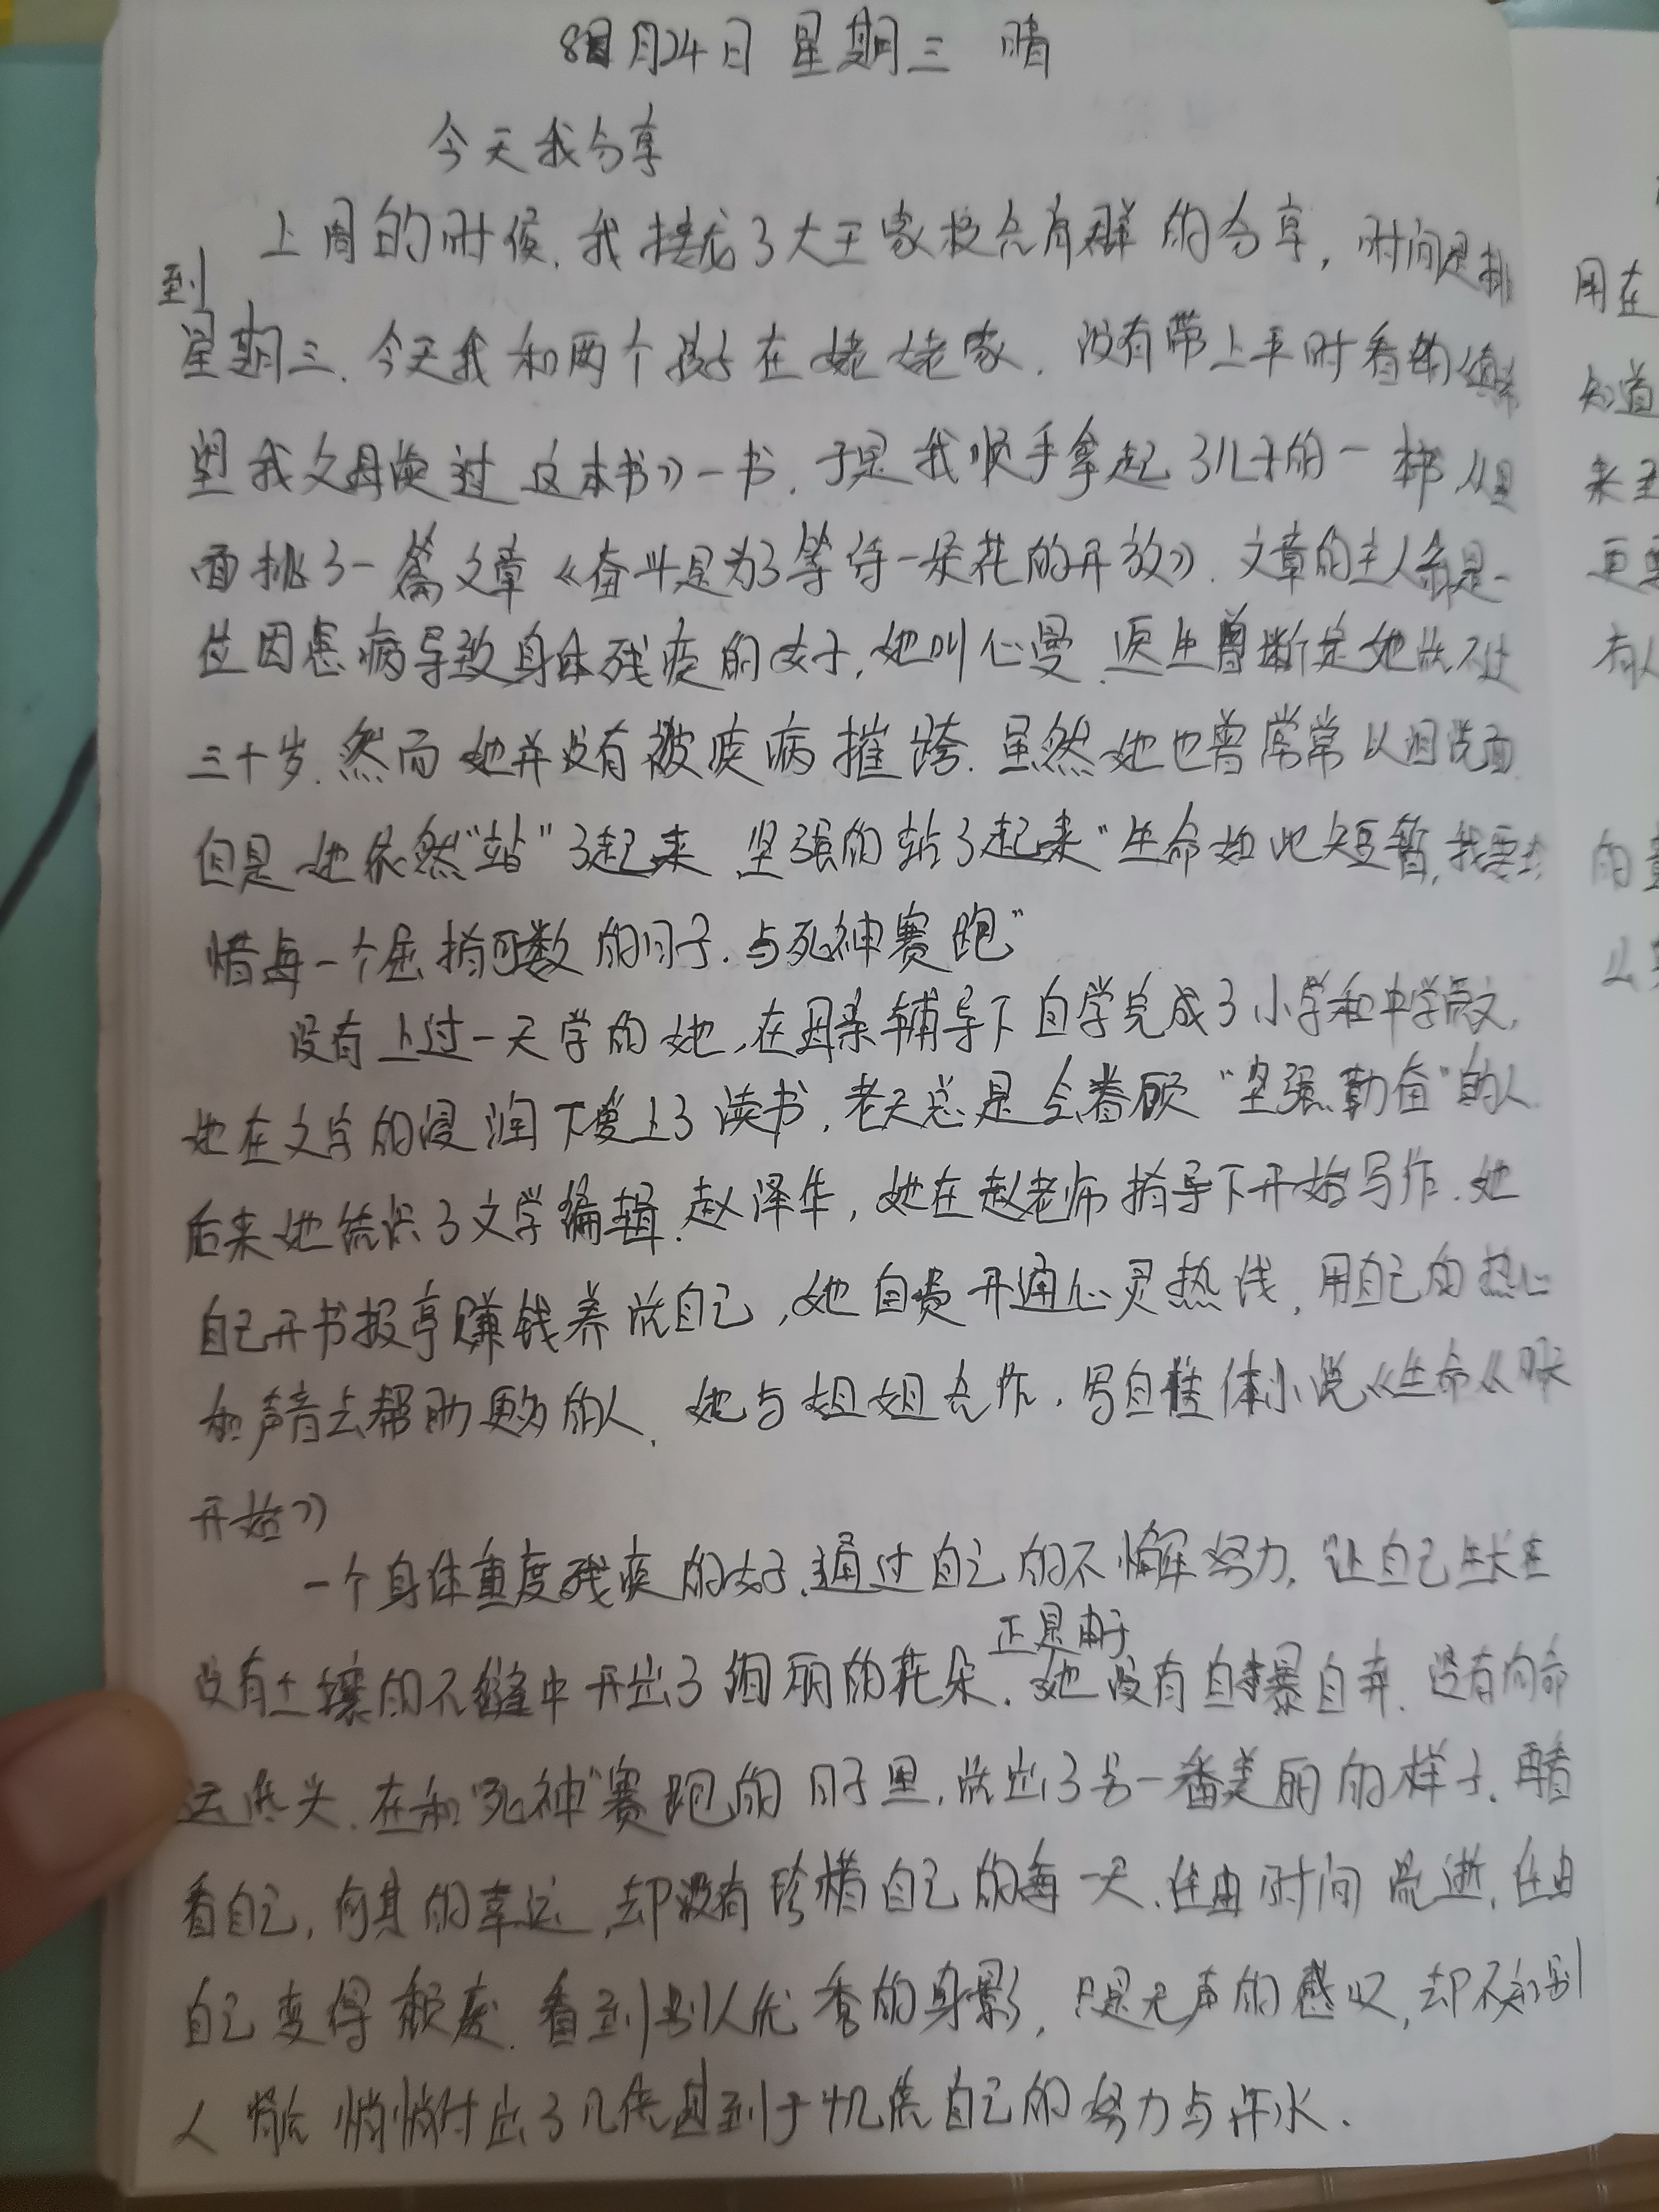 8月24日 星期三 晴
今天我分享
上周的时候,我接龙了大王家校合育群的分享,时间是排
到
星期三.今天我和两个孩子在姥姥家.没有带上平时看的《真希
望我父母读过这本书》一书.于是我顺手拿起了儿子的一本书,从里
面挑了一篇文章《奋斗是为了等待一朵花的开放》.文章的主人翁是一
位因患病导致身体残疾的女子,她叫心曼.医生曾断定她活不过
三十岁.然而她并没有被疾病摧跨.虽然她也曾常常以泪洗面
但是她依然"站"了起来 坚强的站了起来"生命如此短暂,我要珍
惜每一个屈指可数的日子.与死神赛跑"
没有上过一天学的她,在母亲辅导下自学完成了小学和中学语文,
她在文字的浸润下爱上了读书.老天总是会眷顾"坚强勤奋"的人
后来她结识了文学编辑.赵泽华,她在赵老师指导下开始写作.她
自己开书报亭赚钱养活自己,她自费开通心灵热线,用自己的热心
和声音去帮助更多的人.她与姐姐合作.写自传体小说《生命《明天
开始》
一个身体重度残疾的女子.通过自己的不懈努力.让自己生长在
正是由于
没有土壤的石缝中开出了绚丽的花朵.她没有自暴自弃.没有向命
运低头.在和"死神"赛跑的日子里.活出了另一番美丽的样子.再看
看自己,何其的幸运,却没有珍惜自己的每一天.任由时间流逝.任由
自己变得颓废.看到别人优秀的身影,只是无声的感叹,却不知别
人 悄悄付出了几倍甚到于十几倍自己的努力与汗水.
用在
知道
来到
更要
有人
的
么